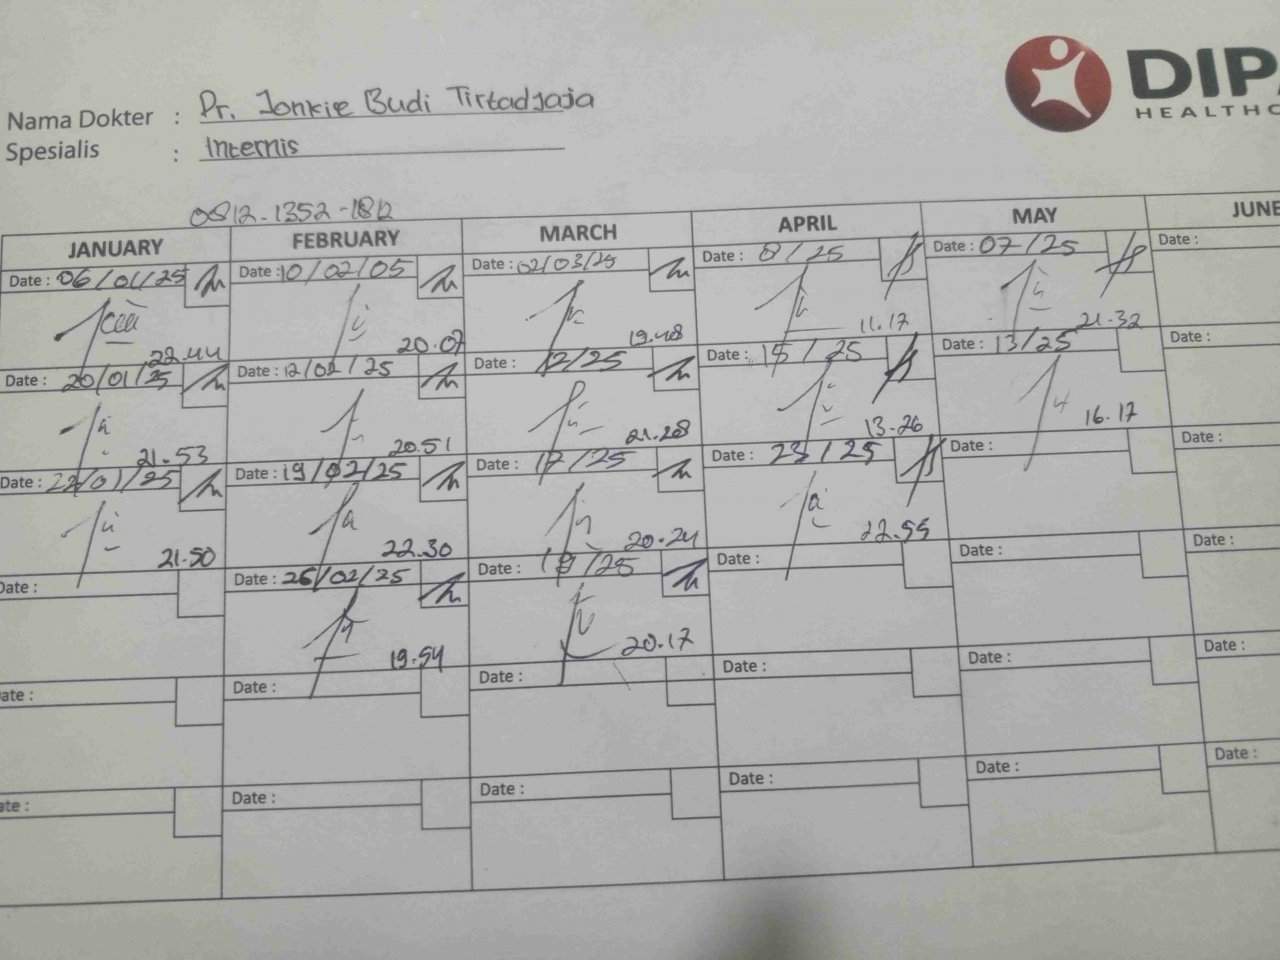 DIPA
HEALTHC
Nama Dokter : Dr. Jonkie Budi Tirtadjaja
Spesialis : Internis
0812-1352-1812
JANUARY FEBRUARY MARCH APRIL MAY JUNE
Date : 06/01/25 Date : 10/02/05 Date : 02/03/25 Date : 8/25 Date : 07/25 Date :
22.44 20.07 19.48 11.17 21.32
Date : 20/01/25 Date : 12/02/25 Date : 12/25 Date : 15/25 Date : 13/25
21.53 20.51 21.28 13.26 16.17
Date : 22/01/25 Date : 19/02/25 Date : 17/25 Date : 23/25 Date : Date :
21.50 22.30 20.24 22.55
Date : Date : 26/02/25 Date : 19/25 Date : Date : Date :
19.54 20.17
ate : Date : Date : Date : Date : Date :
ate : Date : Date : Date : Date : Date :